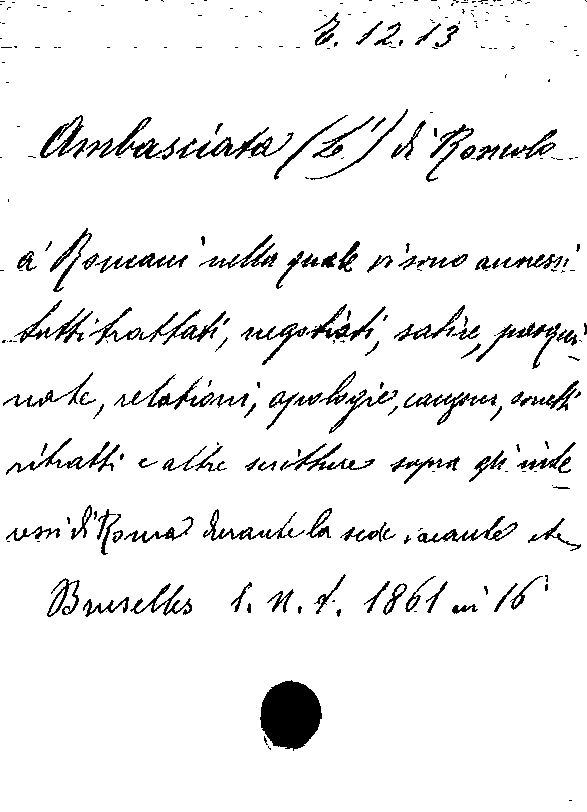 E. 12. 13
Ambasciata (L') di Romolo
a' Romani nella quale vi sono annessi
tutti trattati, negotiati, satire, pasqui-
nate, relationi, apologie, canzoni, sonetti
ritratti e altre scritture sopra gli inte-
ressi di Roma durante la sede vacante etc
Bruselles s. n. t. 1861 in 16°